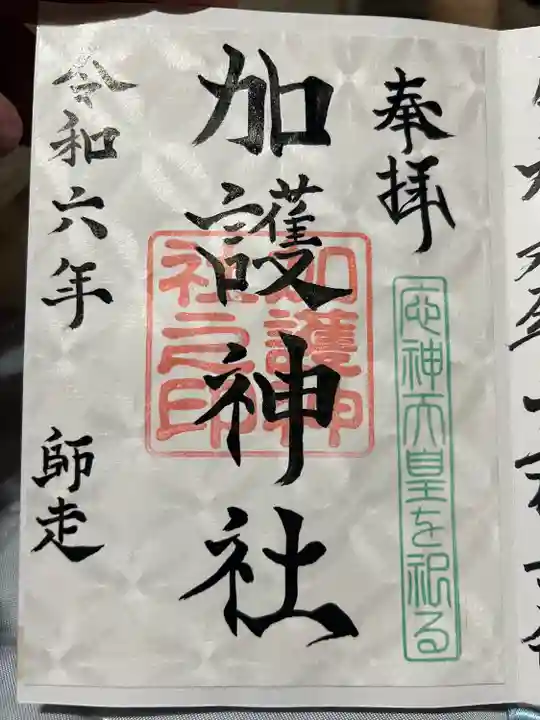 奉拝
応神天皇を祀る
加護神社
加護神
社之印
令和六年
師走